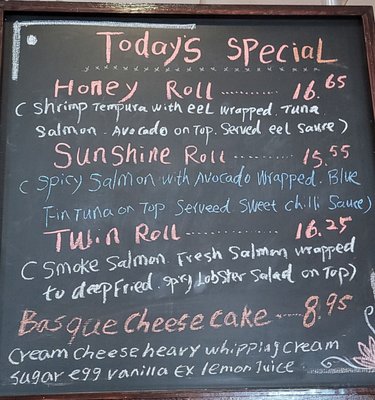 Today's Special
Honey Roll ........... 16.65
(Shrimp Tempura with eel wrapped. Tuna
Salmon. Avocado on Top. Served eel Saure)
Sunshine Roll ........... 15.55
(Spicy Salmon with Avocado Wrapped. Blue
Fin Tuna on Top Serveed Sweet chilli Sauce)
Twin Roll ........... 16.25
(Smoke Salmon. Fresh Salmon wrapped
to deepfried. Spicy Lobster Salad on Top)
Basque Cheese cake ..... 8.95
Cream cheese heary whipping cream
Sugar egg vanilla Ex lemon Juice